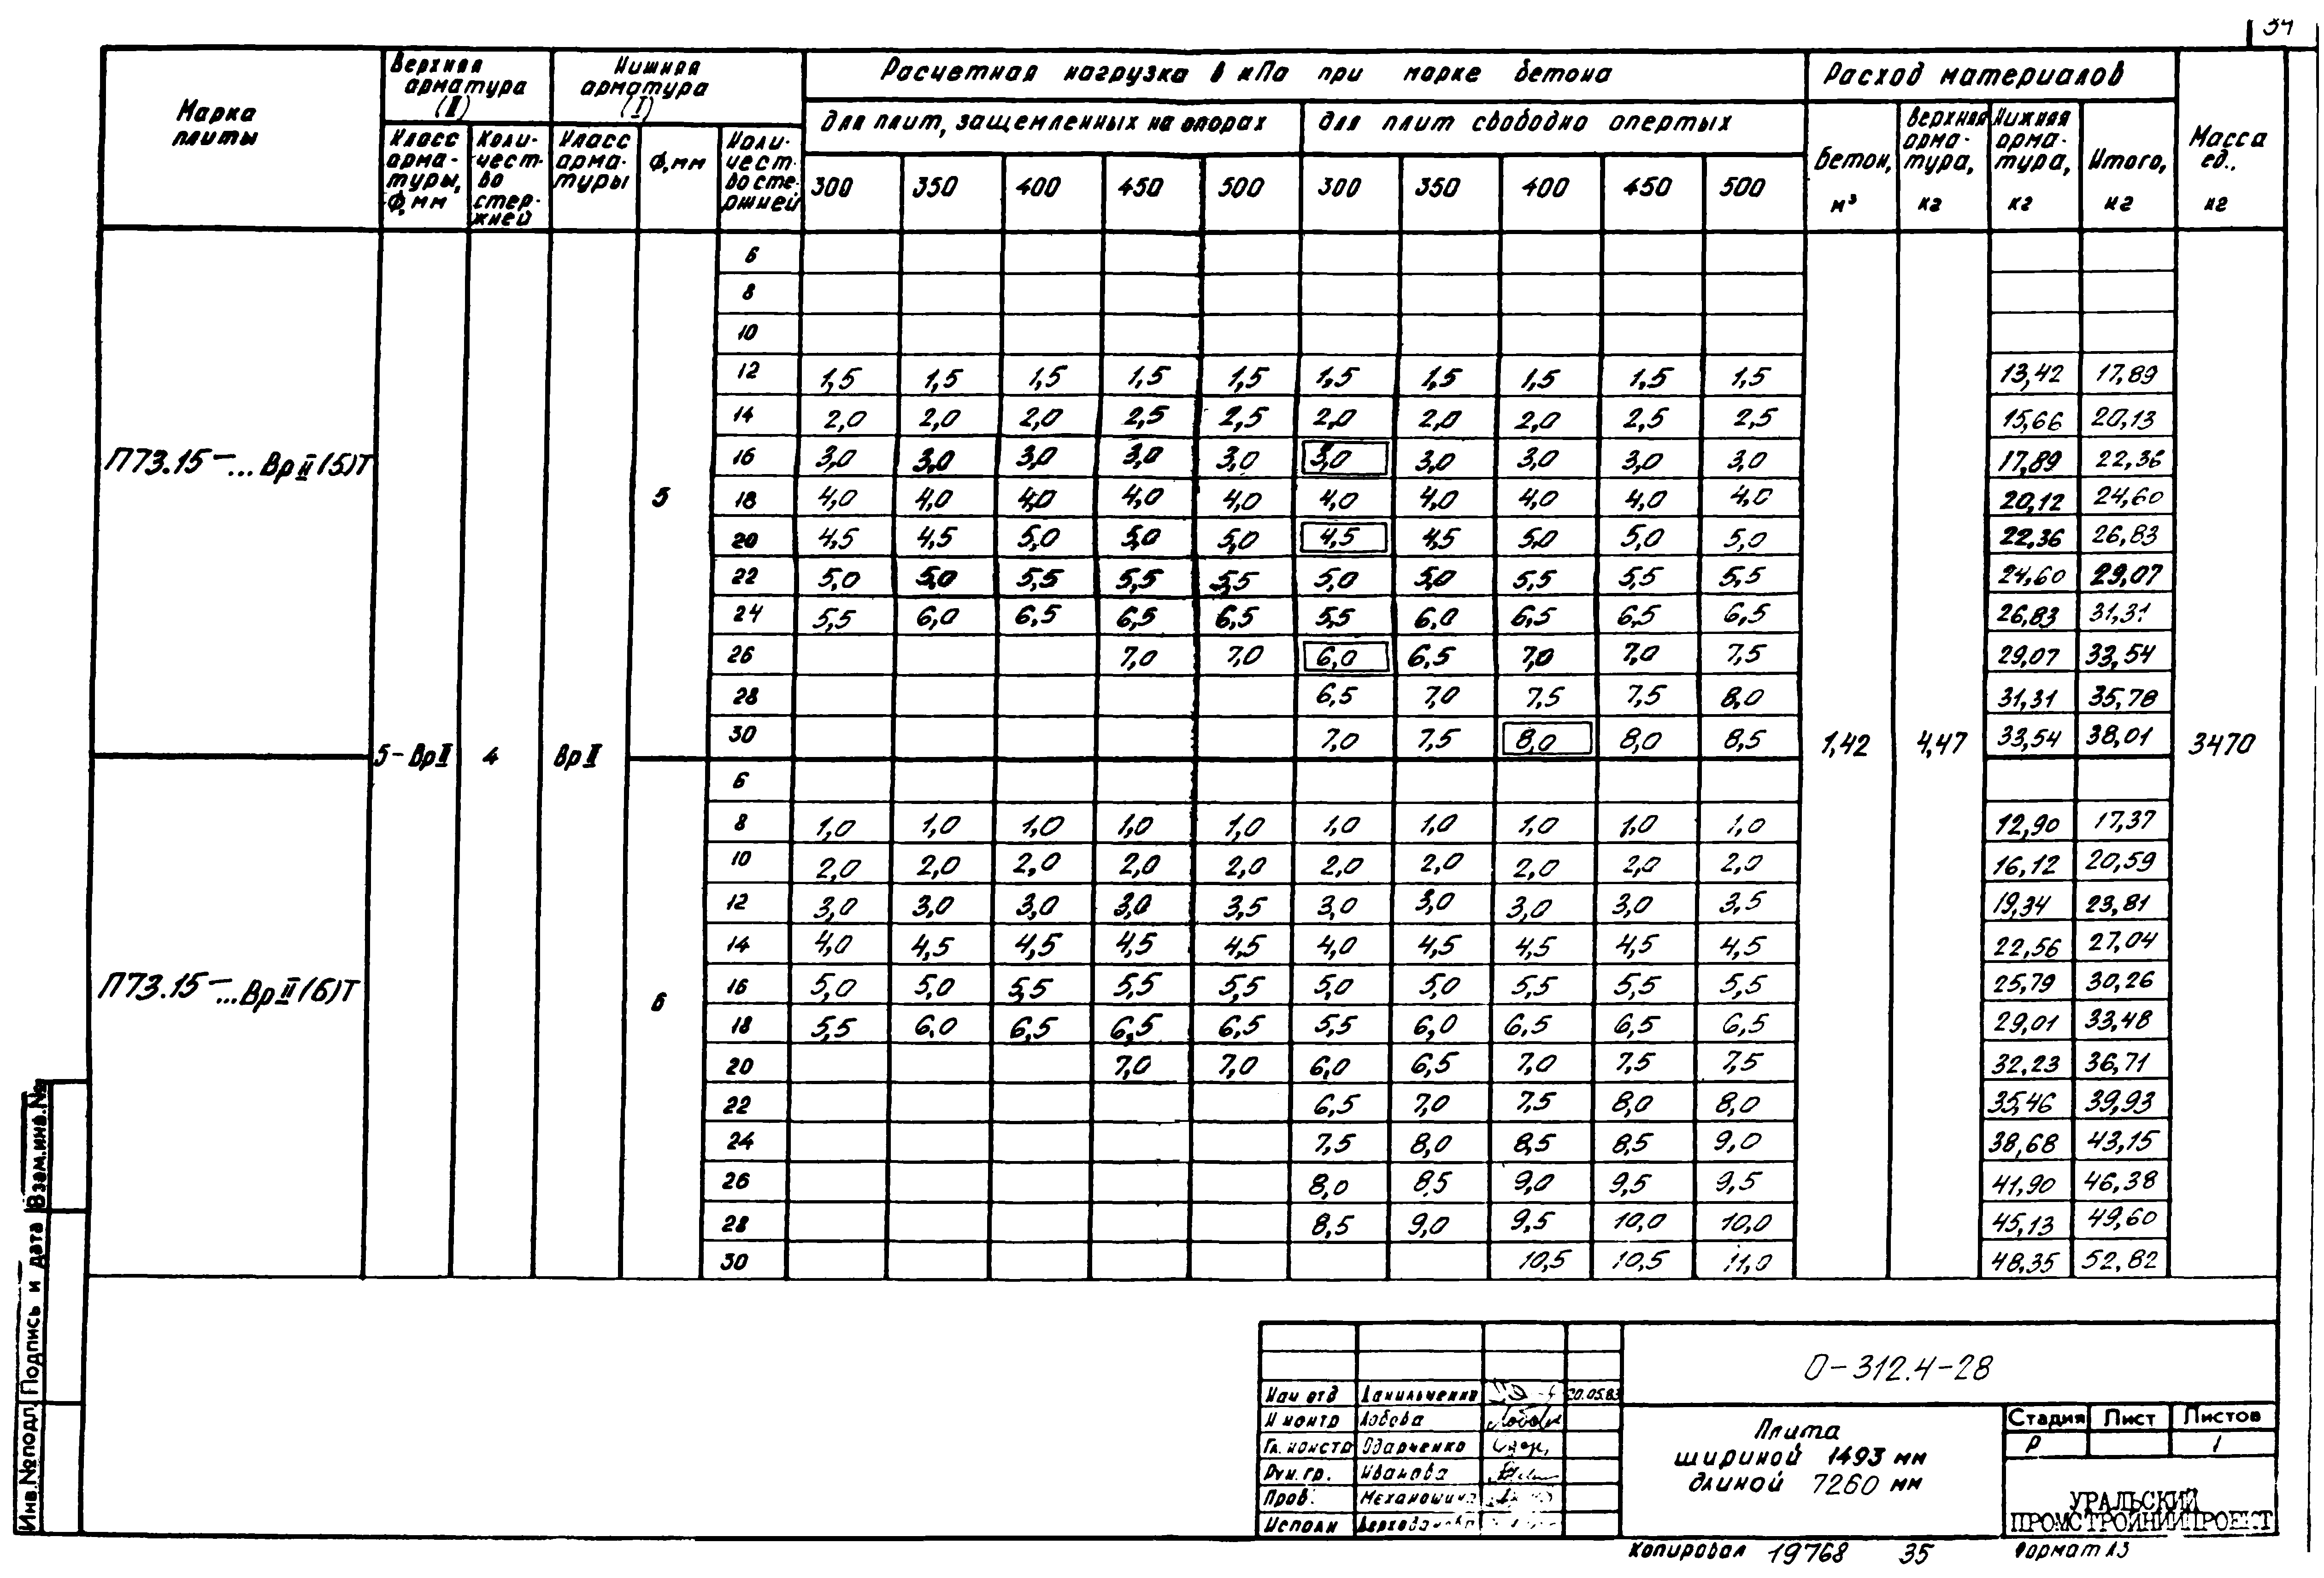 34
Марка плиты
Верхняя арматура (II)
Нижняя арматура (I)
Расчетная нагрузка в кПа при марке бетона
Расход материалов
Масса ед., кг
для плит, защемленных на опорах
для плит свободно опертых
Класс арма-туры, Ф, мм
Коли-чест-во стер-жней
Класс арма-туры
Ф, мм
Коли-чест-во сте-ржней
300 350 400 450 500 300 350 400 450 500
Бетон, м³
Верхняя арма-тура, кг
Нижняя арма-тура, кг
Итого, кг
П73.15-...ВрII(5)Т
5-ВрII 4 ВрII 5
1,42 4,47 3470
6
8
10
12 1,5 1,5 1,5 1,5 1,5 1,5 1,5 1,5 1,5 1,5 13,42 17,89
14 2,0 2,0 2,0 2,5 2,5 2,0 2,0 2,0 2,5 2,5 15,66 20,13
16 3,0 3,0 3,0 3,0 3,0 3,0 3,0 3,0 3,0 3,0 17,89 22,36
18 4,0 4,0 4,0 4,0 4,0 4,0 4,0 4,0 4,0 4,0 20,12 24,60
20 4,5 4,5 5,0 5,0 5,0 4,5 4,5 5,0 5,0 5,0 22,36 26,83
22 5,0 5,0 5,5 5,5 5,5 5,0 5,0 5,5 5,5 5,5 24,60 29,07
24 5,5 6,0 6,5 6,5 6,5 5,5 6,0 6,5 6,5 6,5 26,83 31,31
26 7,0 7,0 6,0 6,5 7,0 7,0 7,5 29,07 33,54
28 6,5 7,0 7,5 7,5 8,0 31,31 35,78
30 7,0 7,5 8,0 8,0 8,5 33,54 38,01
П73.15-...ВрII(6)Т
6
6
8 1,0 1,0 1,0 1,0 1,0 1,0 1,0 1,0 1,0 1,0 12,90 17,37
10 2,0 2,0 2,0 2,0 2,0 2,0 2,0 2,0 2,0 2,0 16,12 20,59
12 3,0 3,0 3,0 3,0 3,5 3,0 3,0 3,0 3,0 3,5 19,34 23,81
14 4,0 4,5 4,5 4,5 4,5 4,0 4,5 4,5 4,5 4,5 22,56 27,04
16 5,0 5,0 5,5 5,5 5,5 5,0 5,0 5,5 5,5 5,5 25,79 30,26
18 5,5 6,0 6,5 6,5 6,5 5,5 6,0 6,5 6,5 6,5 29,01 33,48
20 7,0 7,0 6,0 6,5 7,0 7,5 7,5 32,23 36,71
22 6,5 7,0 7,5 8,0 8,0 35,46 39,93
24 7,5 8,0 8,5 8,5 9,0 38,68 43,15
26 8,0 8,5 9,0 9,5 9,5 41,90 46,38
28 8,5 9,0 9,5 10,0 10,0 45,13 49,60
30 10,5 10,5 11,0 48,35 52,82
Инв.№подл. Подпись и дата Взам.инв.№
0-312.4-28
Нач отд Данильченко 20.05.83
Н контр Лобова
Гл. констр Одарченко
Рук. гр. Иванова
Пров.
Исполн
Плита
шириной 1493 мм
длиной 7260 мм
Стадия Лист Листов
Р 1
УРАЛЬСКИЙ
ПРОМСТРОЙНИИПРОЕКТ
Копировал 19768 35 Формат А3